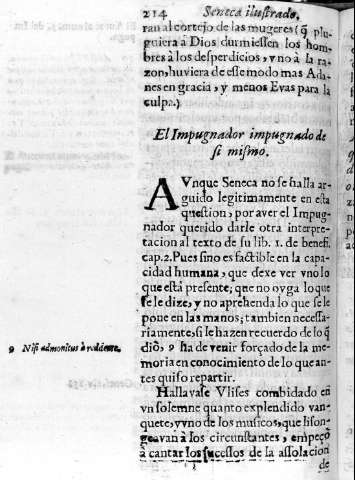 214 Seneca ilustrado.
ran al cortejo de las mugeres (q̃ plu-
guiera à Dios durmiessen los hom-
bres à los desperdicios, y no à la ra-
zon, huviera de esse modo mas Ada-
nes en gracia, y menos Evas para la
culpa.)
El Impugnador impugnado de
si mismo.
AVnque Seneca no se halla ar-
guido legitimamente en esta
question, por aver el Impug-
nador querido darle otra interpre-
tacion al texto de su lib. 1. de benefi.
cap. 2. Pues sino es factible en la capa-
cidad humana, que dexe ver vno lo
que està presente; que no oyga lo que
se le dize, y no aprehenda lo que se le
pone en las manos; tambien necessa-
riamente, si le hazen recuerdo de lo q̃
diò, 9 ha de venir forçado de la me-
moria en conocimiento de lo que an-
tes quiso repartir.
9 Nisi admonitus à reddente.
Hallavase Vlises combidado en
vn solemne quanto explendido van-
quete, y vno de los musicos, que lison-
geavan à los circunstantes, empeçò
à cantar los sucessos de la assolacion
de